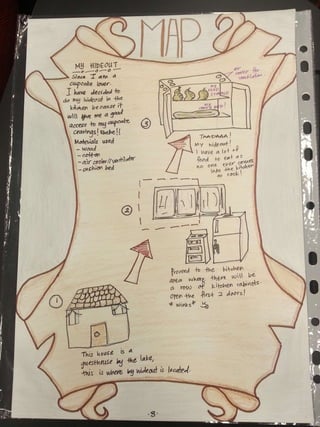 MAP
MY HIDEOUT
Since I am a
cupcake lover.
I have decided to
do my hideout in the
kitchen because it
will give me a good
access to my cupcake
cravings!
Materials used
- wood
- cotton
- air cooler/ventilator
- cushion bed
③
TAADAAA!
My hideout!
I have a lot of
food to eat as
no one ever comes
into the kitchen
to cook!
②
Proceed to the kitchen
area where there will be
a row of kitchen cabinets.
Open the first 2 doors!
* winks *
①
This house is a
guesthouse by the lake,
this is where my hideout is located.
- 8 -